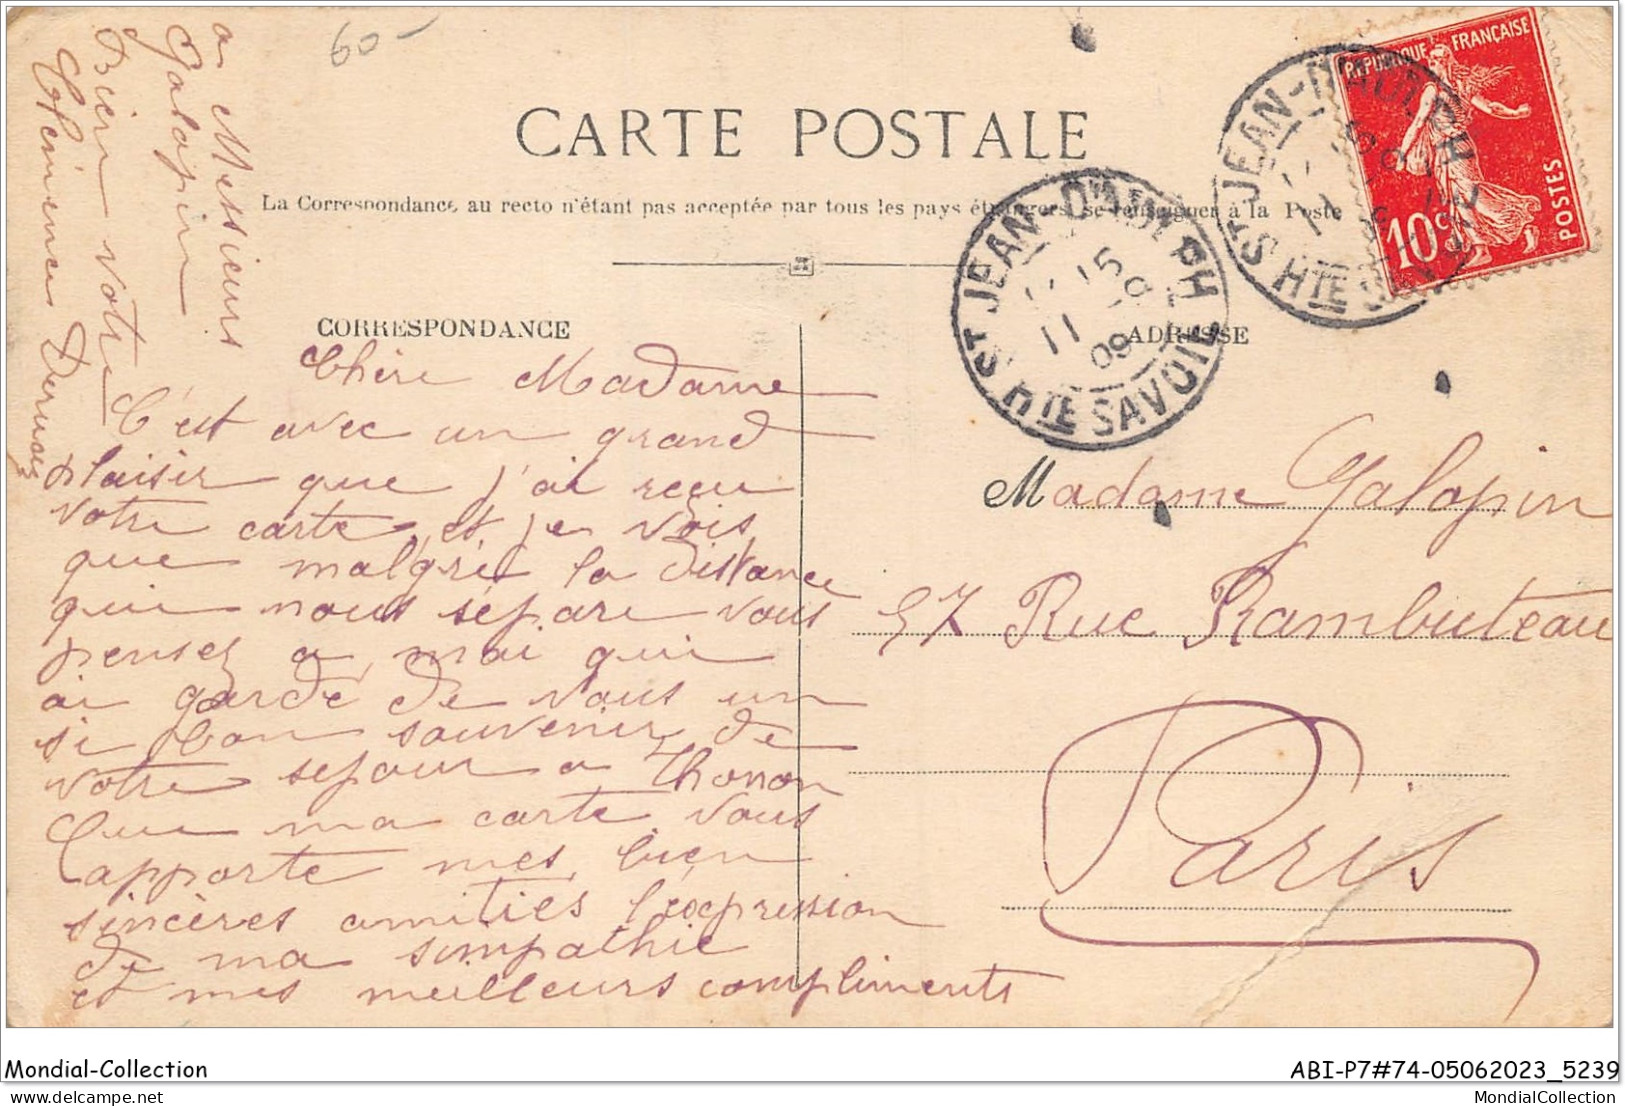 60-
CARTE POSTALE
La Correspondance au recto n'étant pas acceptée par tous les pays étrangers, se renseigner à la Poste
RÉPUBLIQUE FRANÇAISE
POSTES
10c
ST JEAN-D'AULPH
HTE SAVOIE
ST JEAN-D'AULPH
15
11
09
HTE SAVOIE
CORRESPONDANCE
ADRESSE
Chère Madame
C'est avec un grand
plaisir que j'ai reçu
votre carte et je vois
que malgré la distance
qui nous sépare vous
pensez a moi qui
ai gardé de vous un
si bon souvenir de
votre sejour a Thonon
Que ma carte vous
apporte mes bien
sincères amitiés l'expression
de ma simpathie
et mes meilleurs compliments
a Messieurs
Galopin
Bien votre
Clémence
Madame Galopin
57 Rue Rambuteau
Paris
Mondial-Collection
ABI-P7#74-05062023_5239
MondialCollection